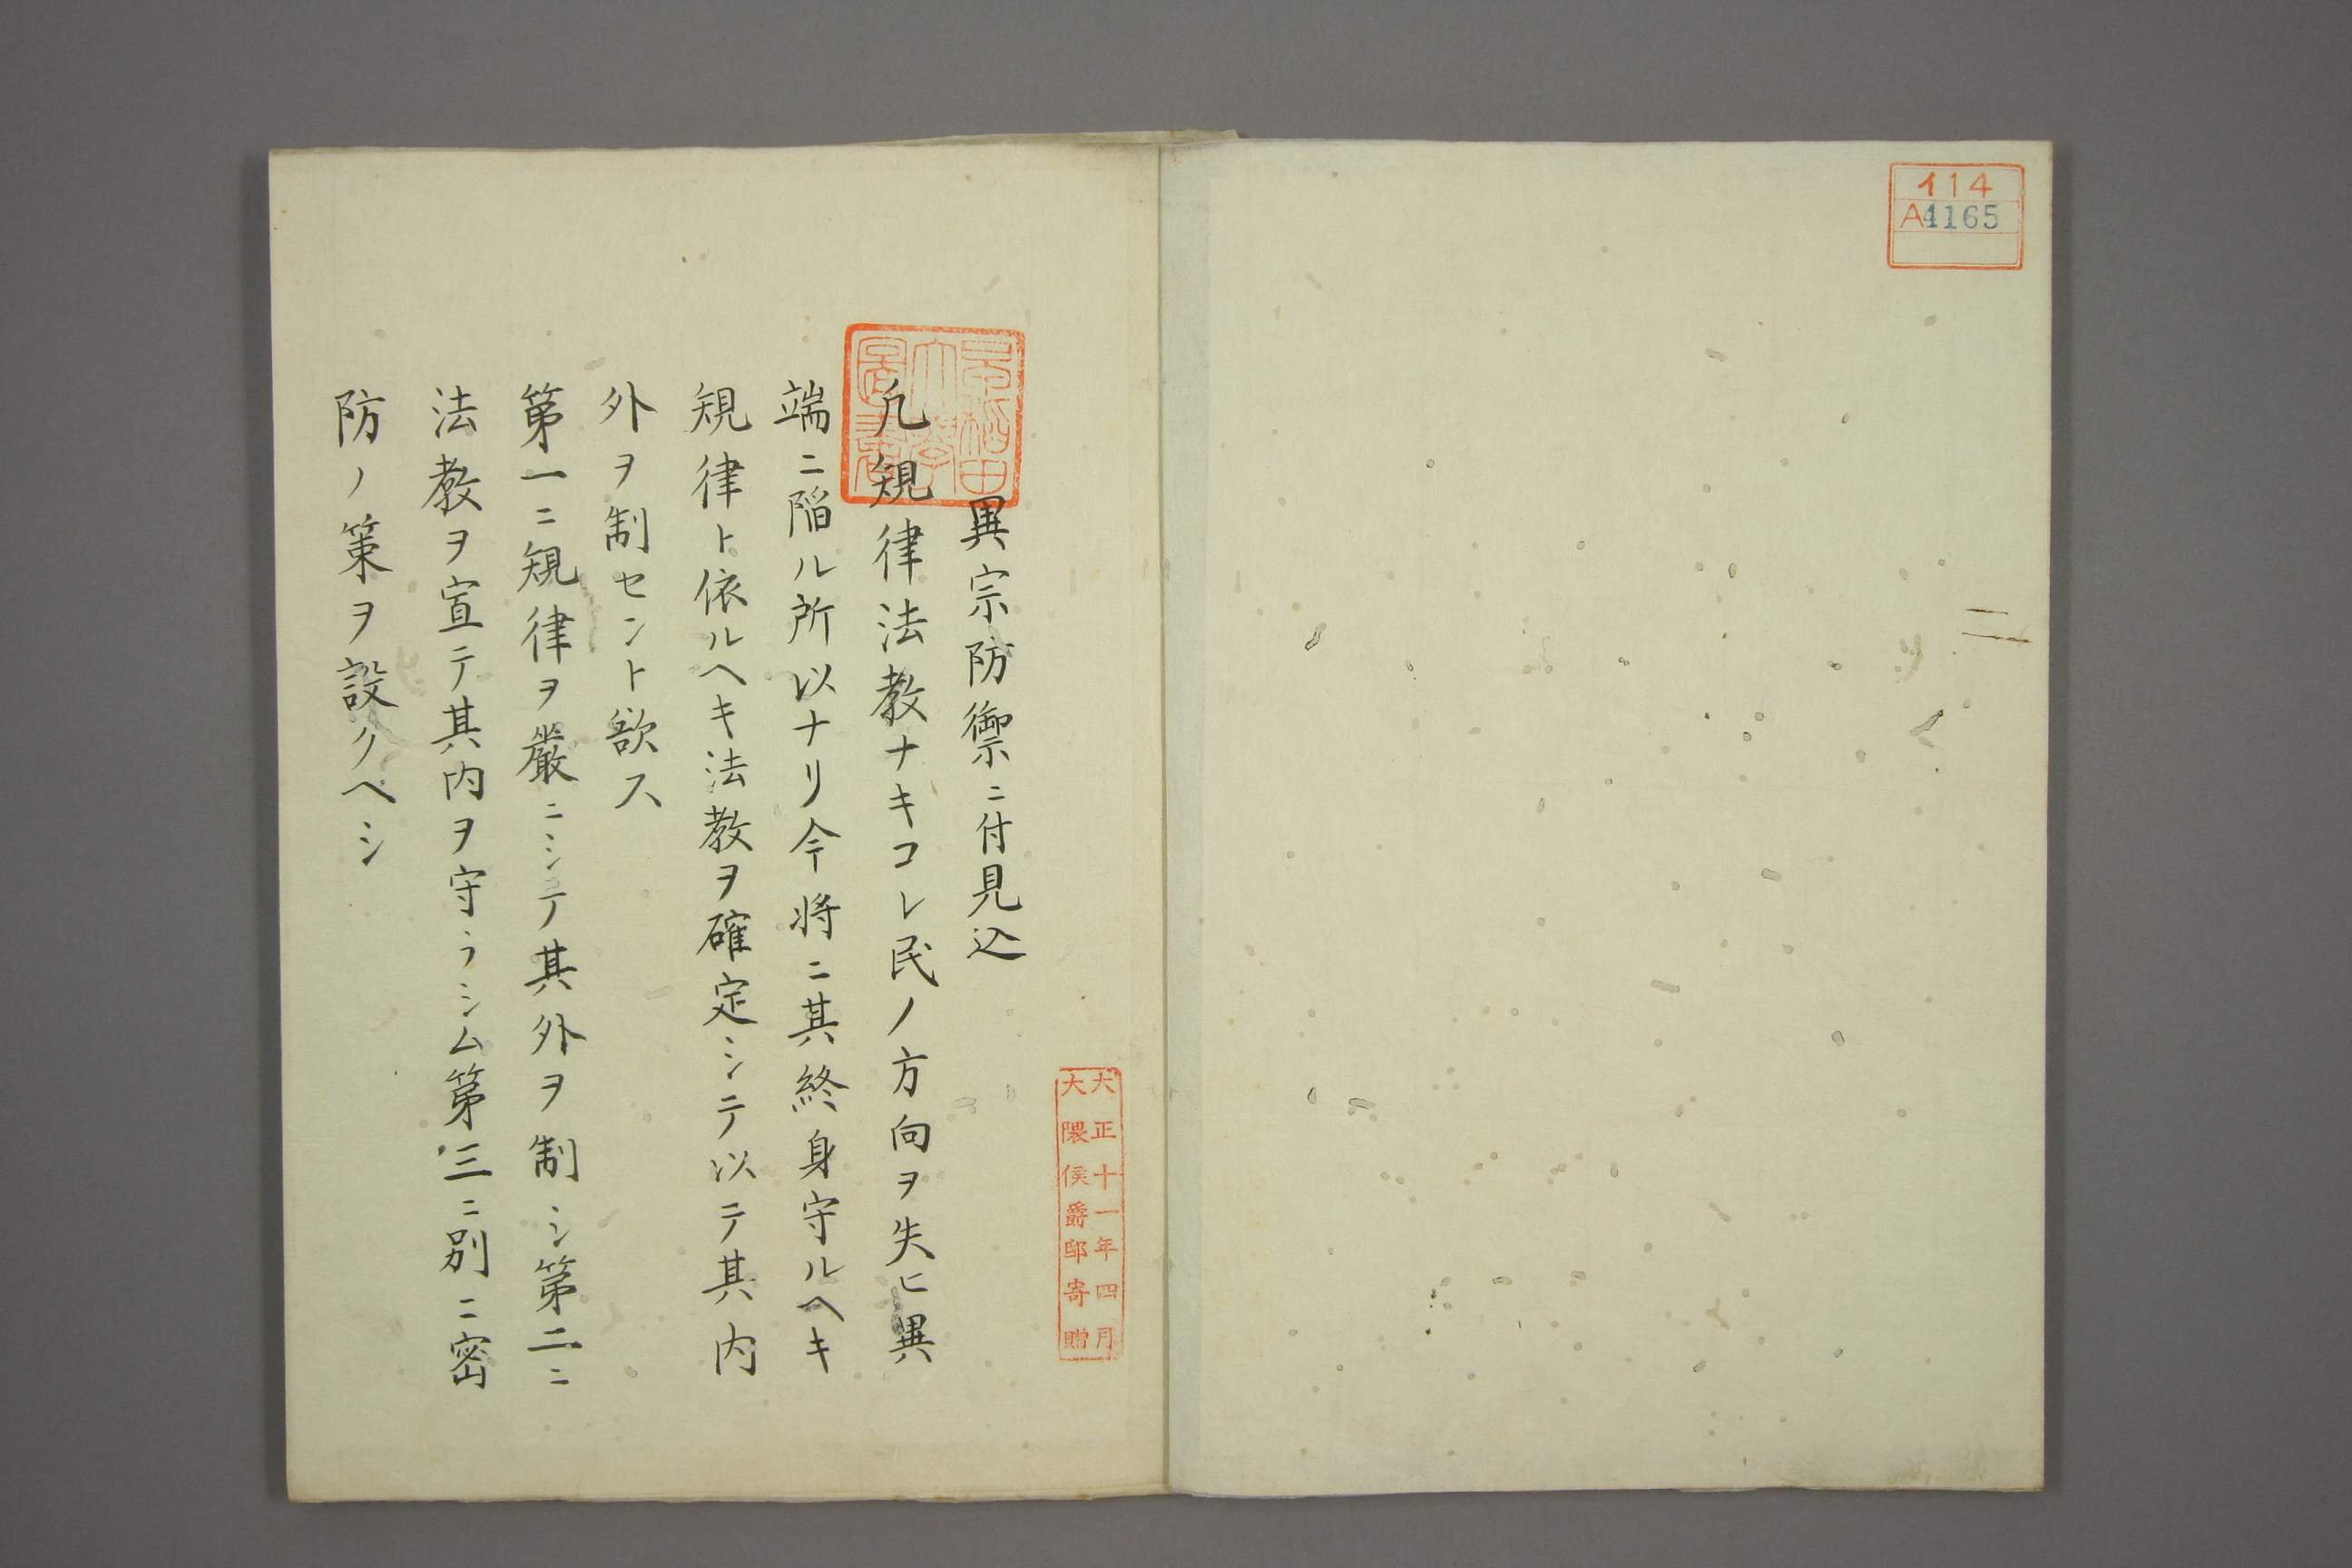 イ14
A4165
二
早稲田
大学
図書
大正十一年四月
大隈侯爵邸寄贈
異宗防禦ニ付見込
凡規律法教ナキコレ民ノ方向ヲ失ヒ異
端ニ陥ル所以ナリ今将ニ其終身守ルヘキ
規律ト依ルヘキ法教ヲ確定シテ以テ其内
外ヲ制セント欲ス
第一ニ規律ヲ厳ニシテ其外ヲ制シ第二ニ
法教ヲ宣テ其内ヲ守ラシム第三ニ別ニ密
防ノ策ヲ設クヘシ